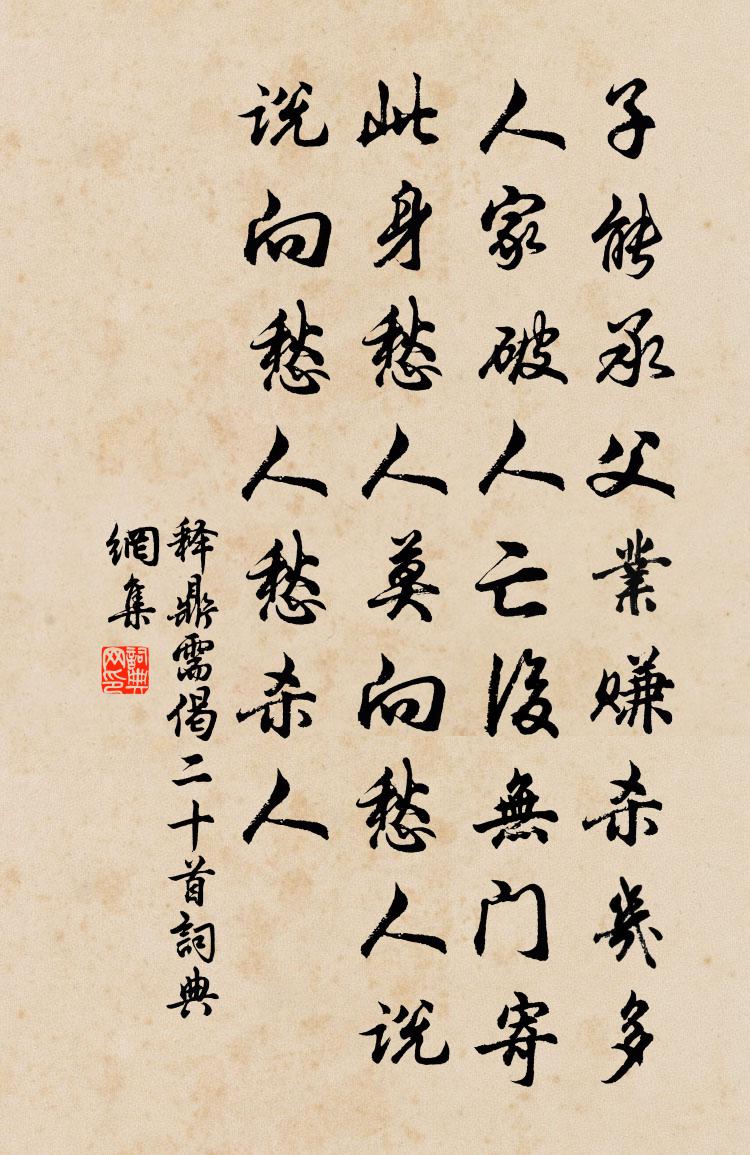 子能承父業赚杀幾多
人家破人亡後無门寄
此身愁人莫向愁人说
说向愁人愁杀人
释鼎需偈二十首詞典
網集
詞典
网印